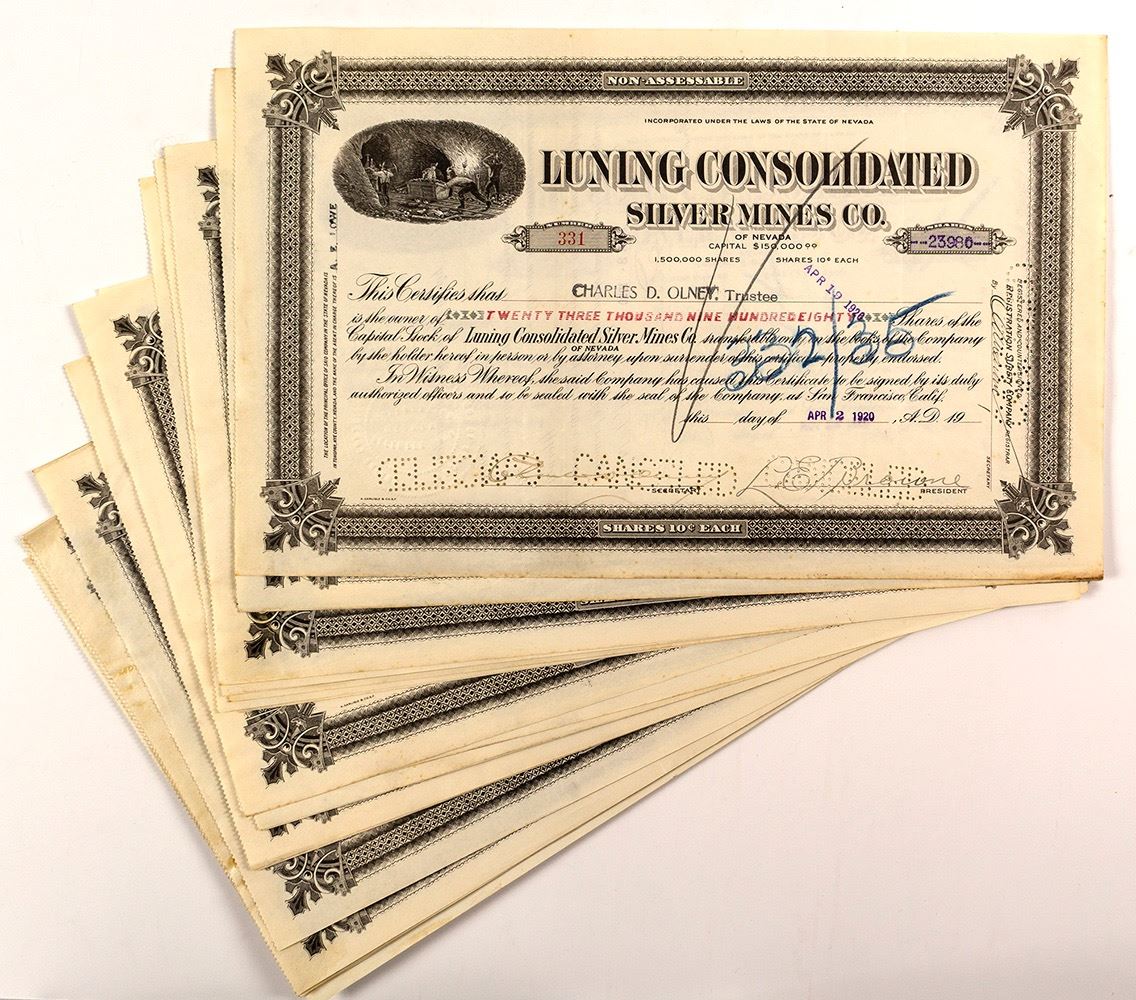 NON-ASSESSABLE
INCORPORATED UNDER THE LAWS OF THE STATE OF NEVADA
LUNING CONSOLIDATED
SILVER MINES CO.
OF NEVADA
331
CAPITAL $150,000.00
23980
1,500,000 SHARES SHARES 10¢ EACH
APR 19 192
This Certifies that CHARLES D. OLNEY, Trustee
is the owner of TWENTY THREE THOUSAND NINE HUNDRED EIGHTY Shares of the
Capital Stock of Luning Consolidated Silver Mines Co. transferable only on the books of the Company
OF NEVADA
by the holder hereof in person or by attorney upon surrender of this certificate properly endorsed.
In Witness Whereof, the said Company has caused this Certificate to be signed by its duly
authorized officers and to be sealed with the seal of the Company at San Francisco, Calif.
this day of APR 2 1920, A.D. 19
SECRETARY PRESIDENT
SHARES 10¢ EACH
THE LOCATION OF THE PRINCIPAL OFFICE OF SAID COMPANY IN THE STATE OF NEVADA IS
IN TONOPAH, NYE COUNTY, NEVADA, AND THE NAME OF THE AGENT IN CHARGE THEREOF IS A. E. LOWE
REGISTERED AND COUNTERSIGNED
REGISTRATION TRUST COMPANY, REGISTRAR
BY
SECRETARY